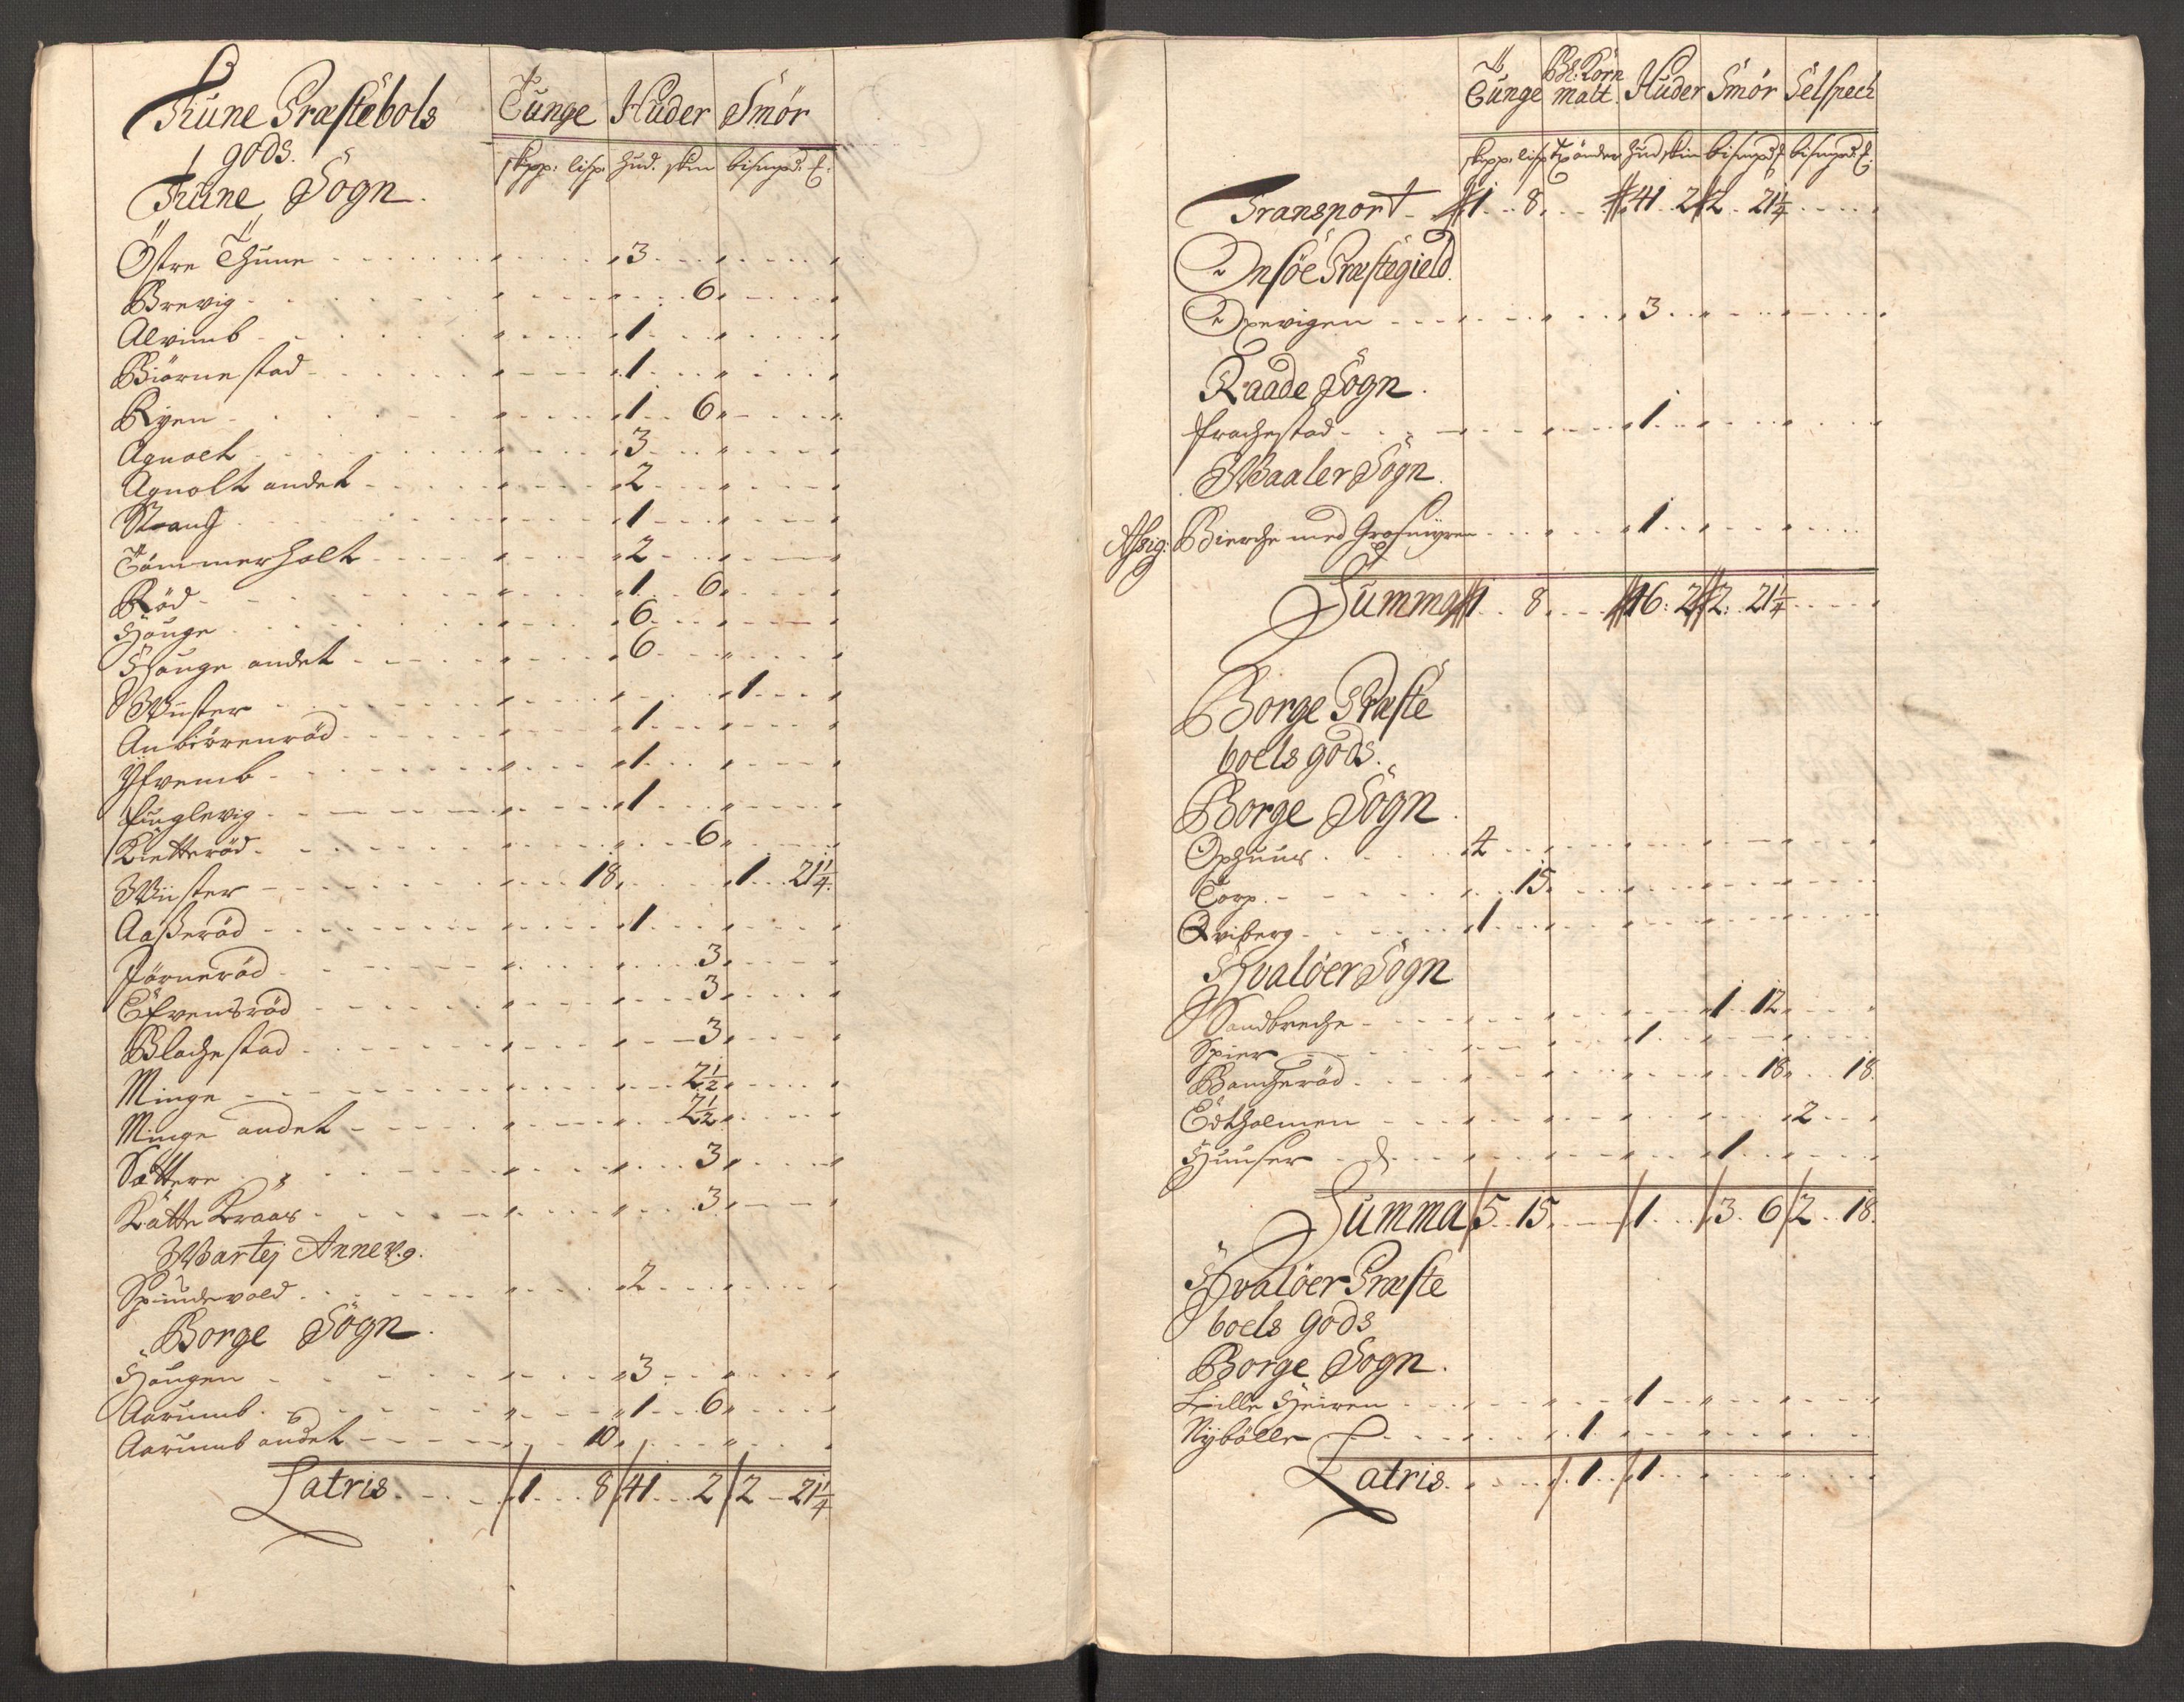 Thune Præstebols gods.
Tunge Huder Smør
skpp: lisp: hud. skin bismpd: ℔:
Thune Sogn.
Östre Thune 3
Brevig 6
Alvimb 1
Biörnestad 1
Ryen 1 6
Agnalt 3
Agnolt andet 2
Strand 1
Tömmerholt 2
Röd 1 6
Houge 6
Houge andet 6
Wister 1
Anbiörenröd 1
Yfvemb 1
fuglevig 1
Kietteröd 6
Wister 18 1 21¼
Aaßeröd 1
Jörneröd 3
Efvensröd 3
Blachestad 3
Minge 2½
Minge andet 2½
Sættere 3
Katte Kraas 3
Wartej Annex.
Spündevold 2
Borge Sogn.
Hougen 3
Aarumb 1 6
Aarumb andet 10
Latris 1 8 41 2 2 21¼
Tunge Bl: Korn malt. Huder Smør Selspech
skpp: lisp tönder hud skin bismpd ℔ bismpd: ℔:
Transport 1 8 41 2 2 21¼
Onsöe Præstegield
Oxevigen 3
Raade Sogn.
frachestad 1
Waaler Sogn.
Afsig: Bierche med Grosmyren 1
Summa 1 8 46: 2 2: 21¼
Borge Præste
boels gods.
Borge Sogn.
Ophuus 4
Torp 15
Qviberg 1
Hvaløer Sogn
Sandbreche 1 12
Spier 1
Bancheröd 18 18
Edtholmen 2
Huuser 1
Summa 5 15 1 3 6 2 18
Hvaløer Præste
boels gods
Borge Sogn.
Lille Heiren 1
Nÿbölle 1
Latris 1 1